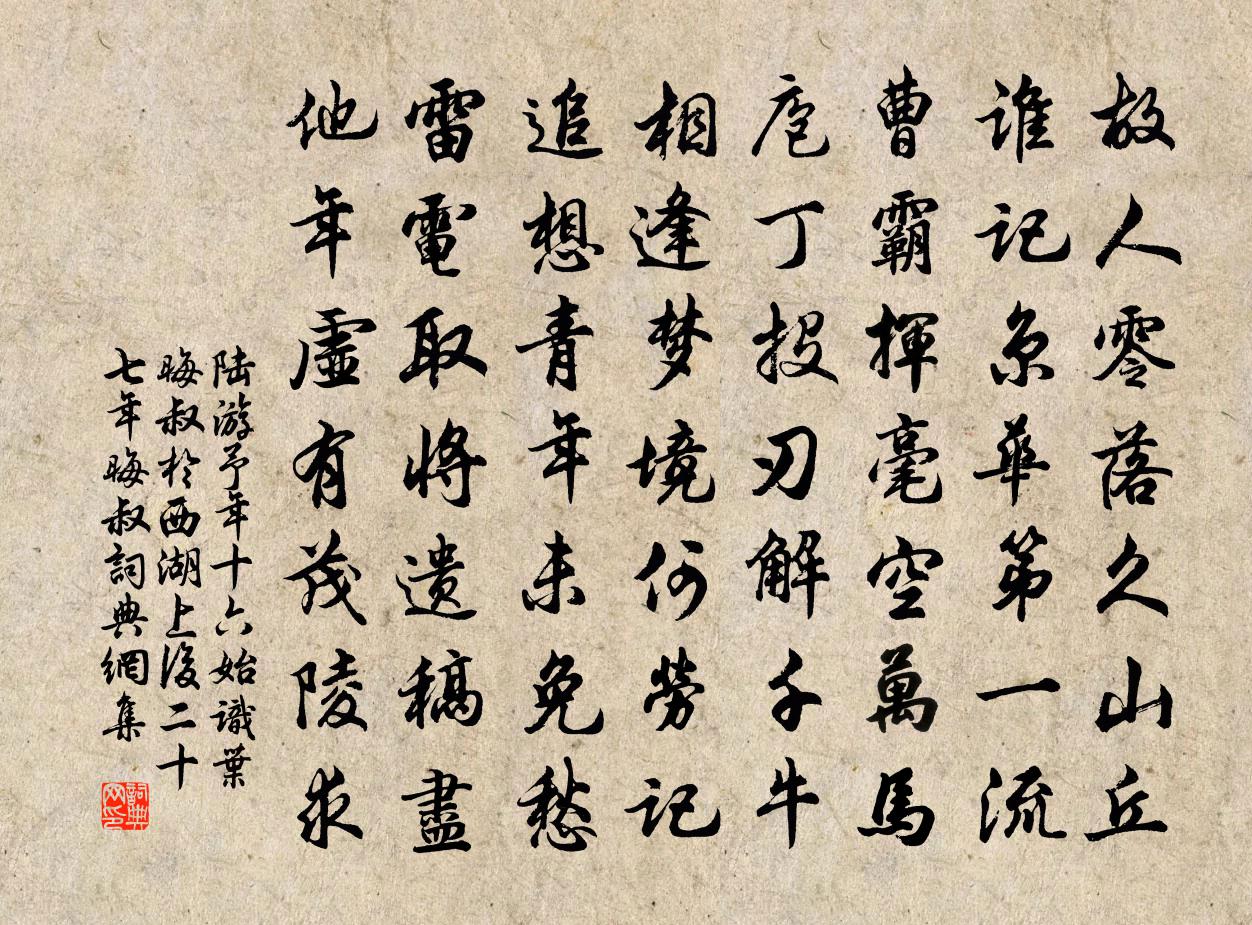 故人零落久山丘
谁记京華第一流
曹霸揮毫空萬馬
庖丁投刃解千牛
相逢梦境何勞记
追想青年未免愁
雷電取將遗稿盡
他年虛有茂陵求
陆游予年十六始識葉
晦叔於西湖上後二十
七年晦叔詞典網集
詞典
网印